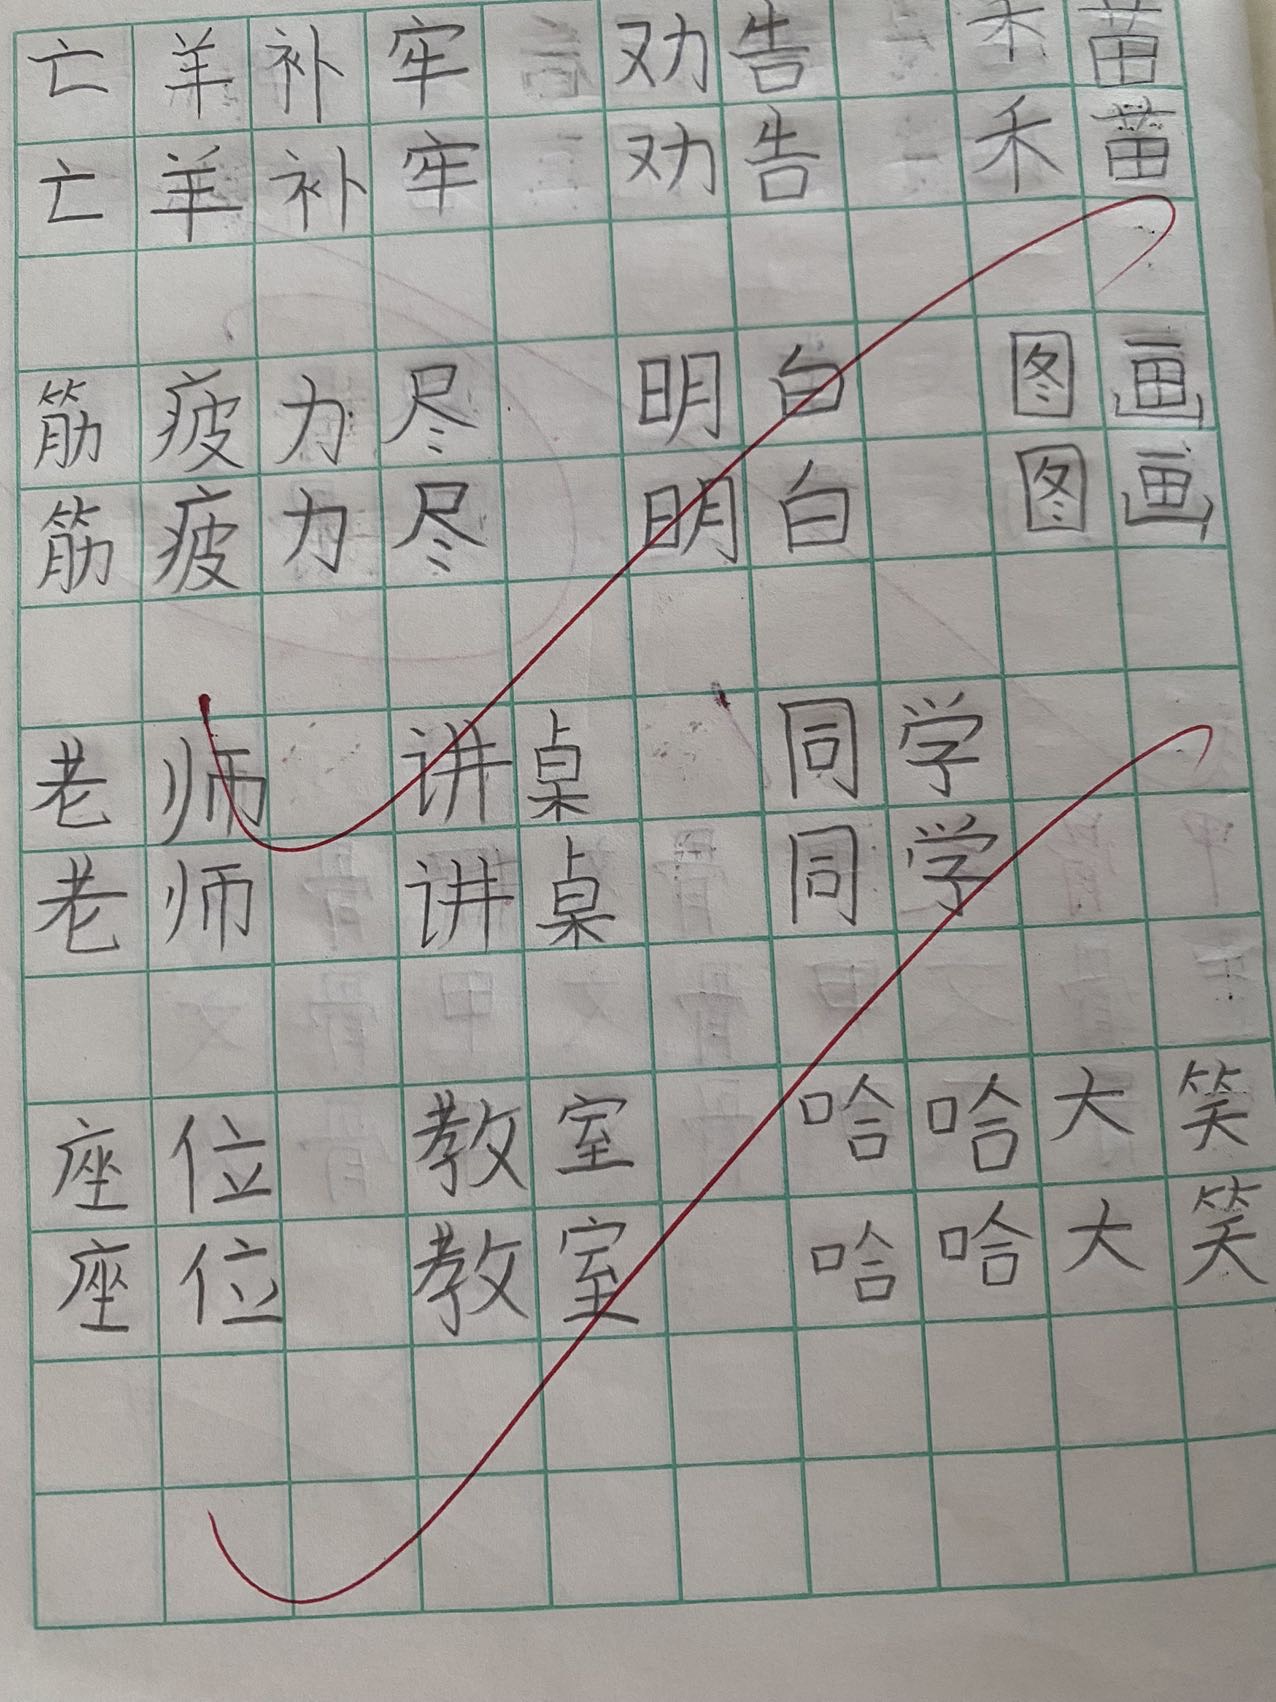 亡羊补牢 劝告 禾苗
亡羊补牢 劝告 禾苗
筋疲力尽 明白 图画
筋疲力尽 明白 图画
老师 讲桌 同学
老师 讲桌 同学
座位 教室 哈哈大笑
座位 教室 哈哈大笑